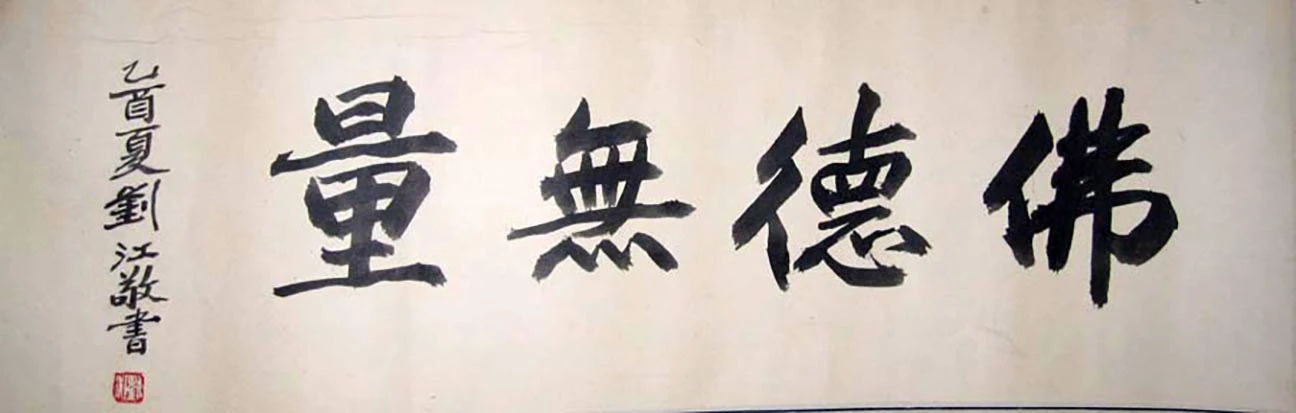 佛德無量
乙酉夏劉江敬書